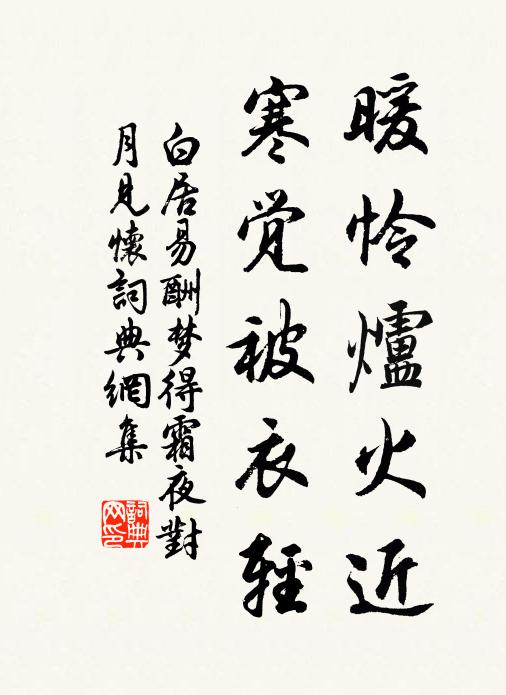 暖怜爐火近
寒觉被衣輕
白居易酬梦得霜夜對
月見懷詞典網集
詞典
网印